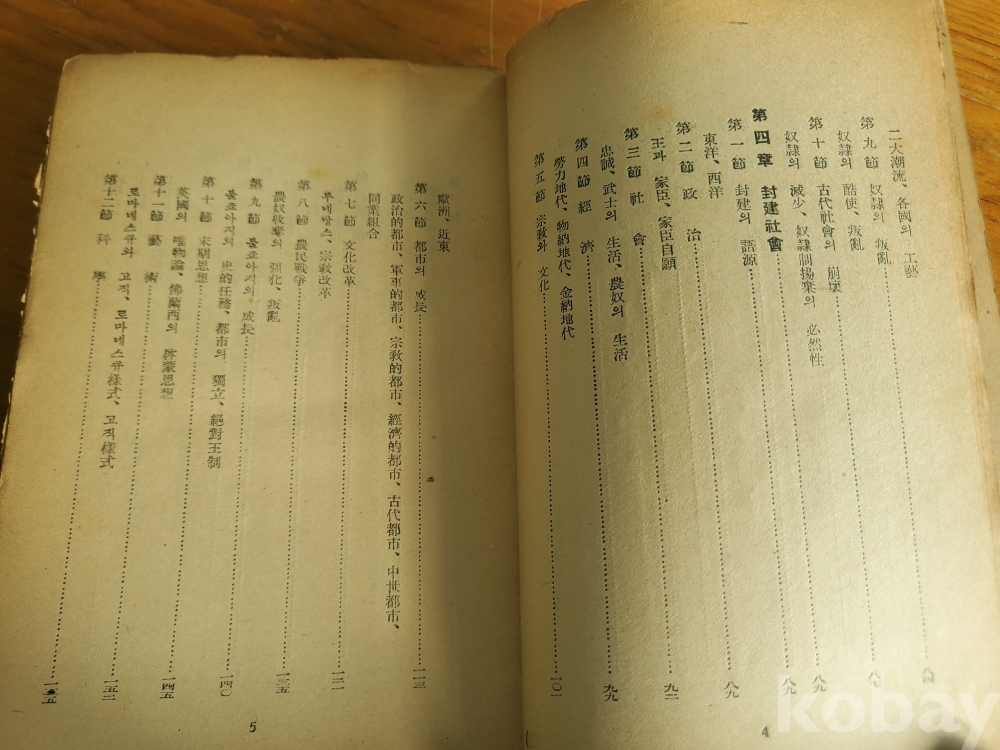 二大潮流、各國의 工藝
第九節 奴隷의 叛亂
奴隷의 酷使、叛亂
第十節 古代社會의 崩壞
奴隷의 減少、奴隷制揚棄의 必然性
第四章 封建社會 八九
第一節 封建의 語源 八九
東洋、西洋
第二節 政治 九二
王과 家臣、家臣自願
第三節 社會 九九
忠誠、武士의 生活、農奴의 生活
第四節 經濟
勞力地代、物納地代、金納地代
第五節 宗敎와 文化 一〇一
4
歐洲、近東
第六節 都市의 成長 一一三
政治的都市、軍事的都市、宗敎的都市、經濟的都市、古代都市、中世都市、
同業組合
第七節 文化改革 一二一
루네쌍스、宗敎改革
第八節 農民戰爭 一三五
農奴收奪의 强化、叛亂
第九節 불죠아지의 成長
불죠아지의 史的任務、都市의 獨立、絕對王制
第十節 末期思想 一四〇
英國의 唯物論、佛蘭西의 啓蒙思想
第十一節 藝術 一四五
로마네스큐와 고직、로마네스큐樣式、고직樣式
第十二節 科學 一五二
一五五
5
kobay